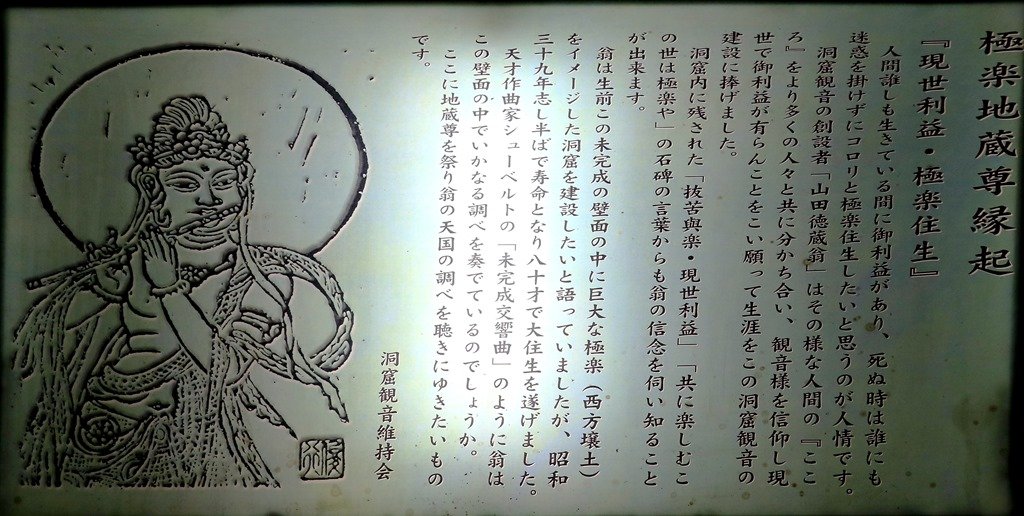 極楽地蔵尊縁起
『現世利益・極楽住生』
人間誰しも生きている間に御利益があり、死ぬ時は誰にも
迷惑を掛けずにコロリと極楽住生したいと思うのが人情です。
洞窟観音の創設者「山田徳蔵翁」はその様な人間の『ここ
ろ』をより多くの人々と共に分かち合い、観音様を信仰し現
世で御利益が有らんことをこい願って生涯をこの洞窟観音の
建設に捧げました。
洞窟内に残された「抜苦與楽・現世利益」「共に楽しむこ
の世は極楽や」の石碑の言葉からも翁の信念を伺い知ること
が出来ます。
翁は生前この未完成の壁面の中に巨大な極楽（西方壌土）
をイメージした洞窟を建設したいと語っていましたが、昭和
三十九年志し半ばで寿命となり八十才で大住生を遂げました。
天才作曲家シューベルトの「未完成交響曲」のように翁は
この壁面の中でいかなる調べを奏でているのでしょうか。
ここに地蔵尊を祭り翁の天国の調べを聴きにゆきたいもの
です。
洞窟観音維持会